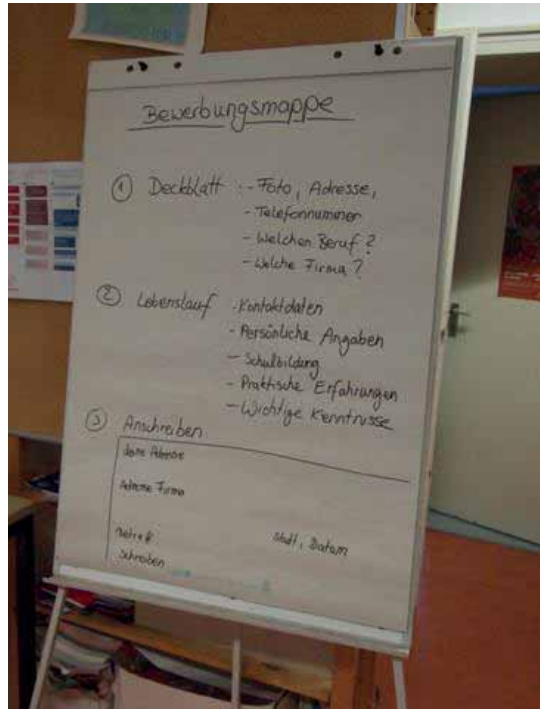 Bewerbungsmappe
① Deckblatt :- Foto, Adresse,
- Telefonnummer
- Welchen Beruf?
- Welche Firma?
② Lebenslauf - Kontaktdaten
- Persönliche Angaben
- Schulbildung
- Praktische Erfahrungen
- Wichtige Kenntnisse
③ Anschreiben
deine Adresse
Adresse Firma
Stadt, Datum
Betreff
Schreiben